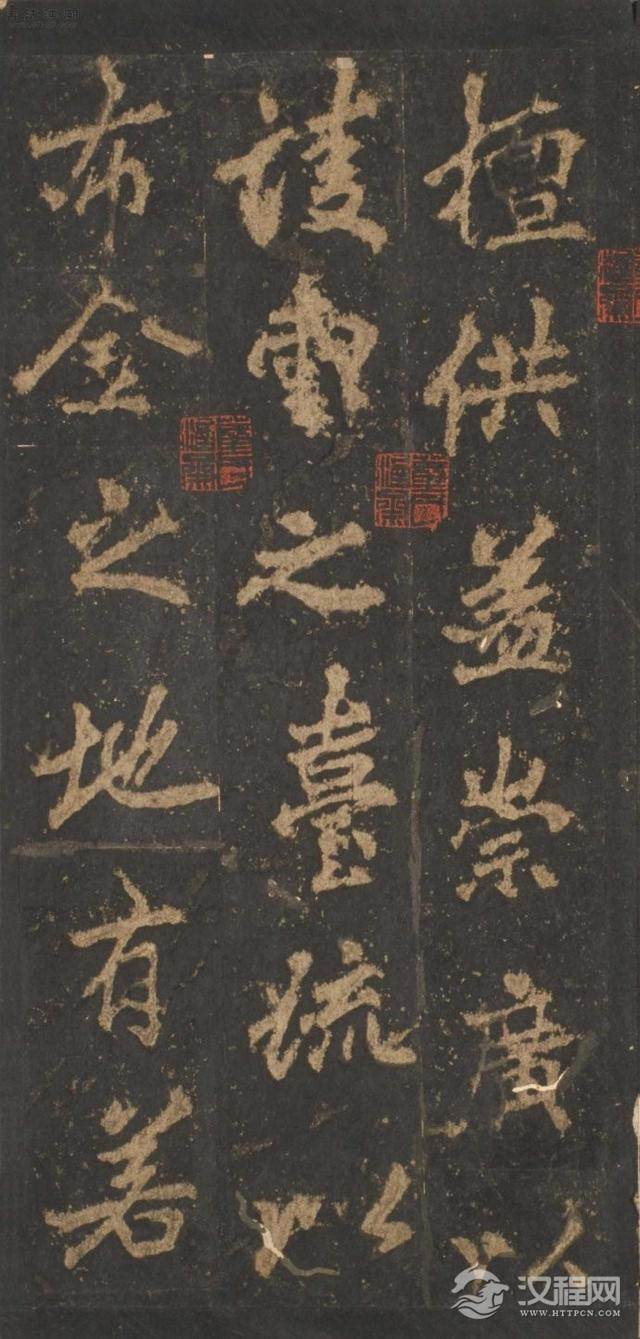 檀供益崇廣以
淩雲之臺疏以
布金之地有若
汉程网
WWW.HTTPCN.COM